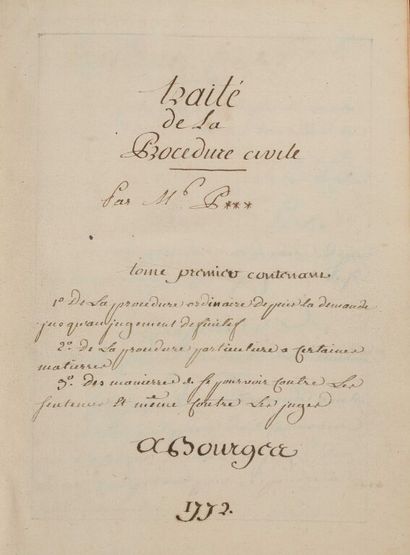 traité
de La
Procedure civile
Par Mr P***
tome premier contenant
1o De La procedure ordinaire depuis la demande
jusqu'au jugement definitif
2o. de La procedure particuliere a certaines
matierres
3o. des manierres de se pourvoir contre Les
sentences et même contre Les juges
A Bourges
1772.